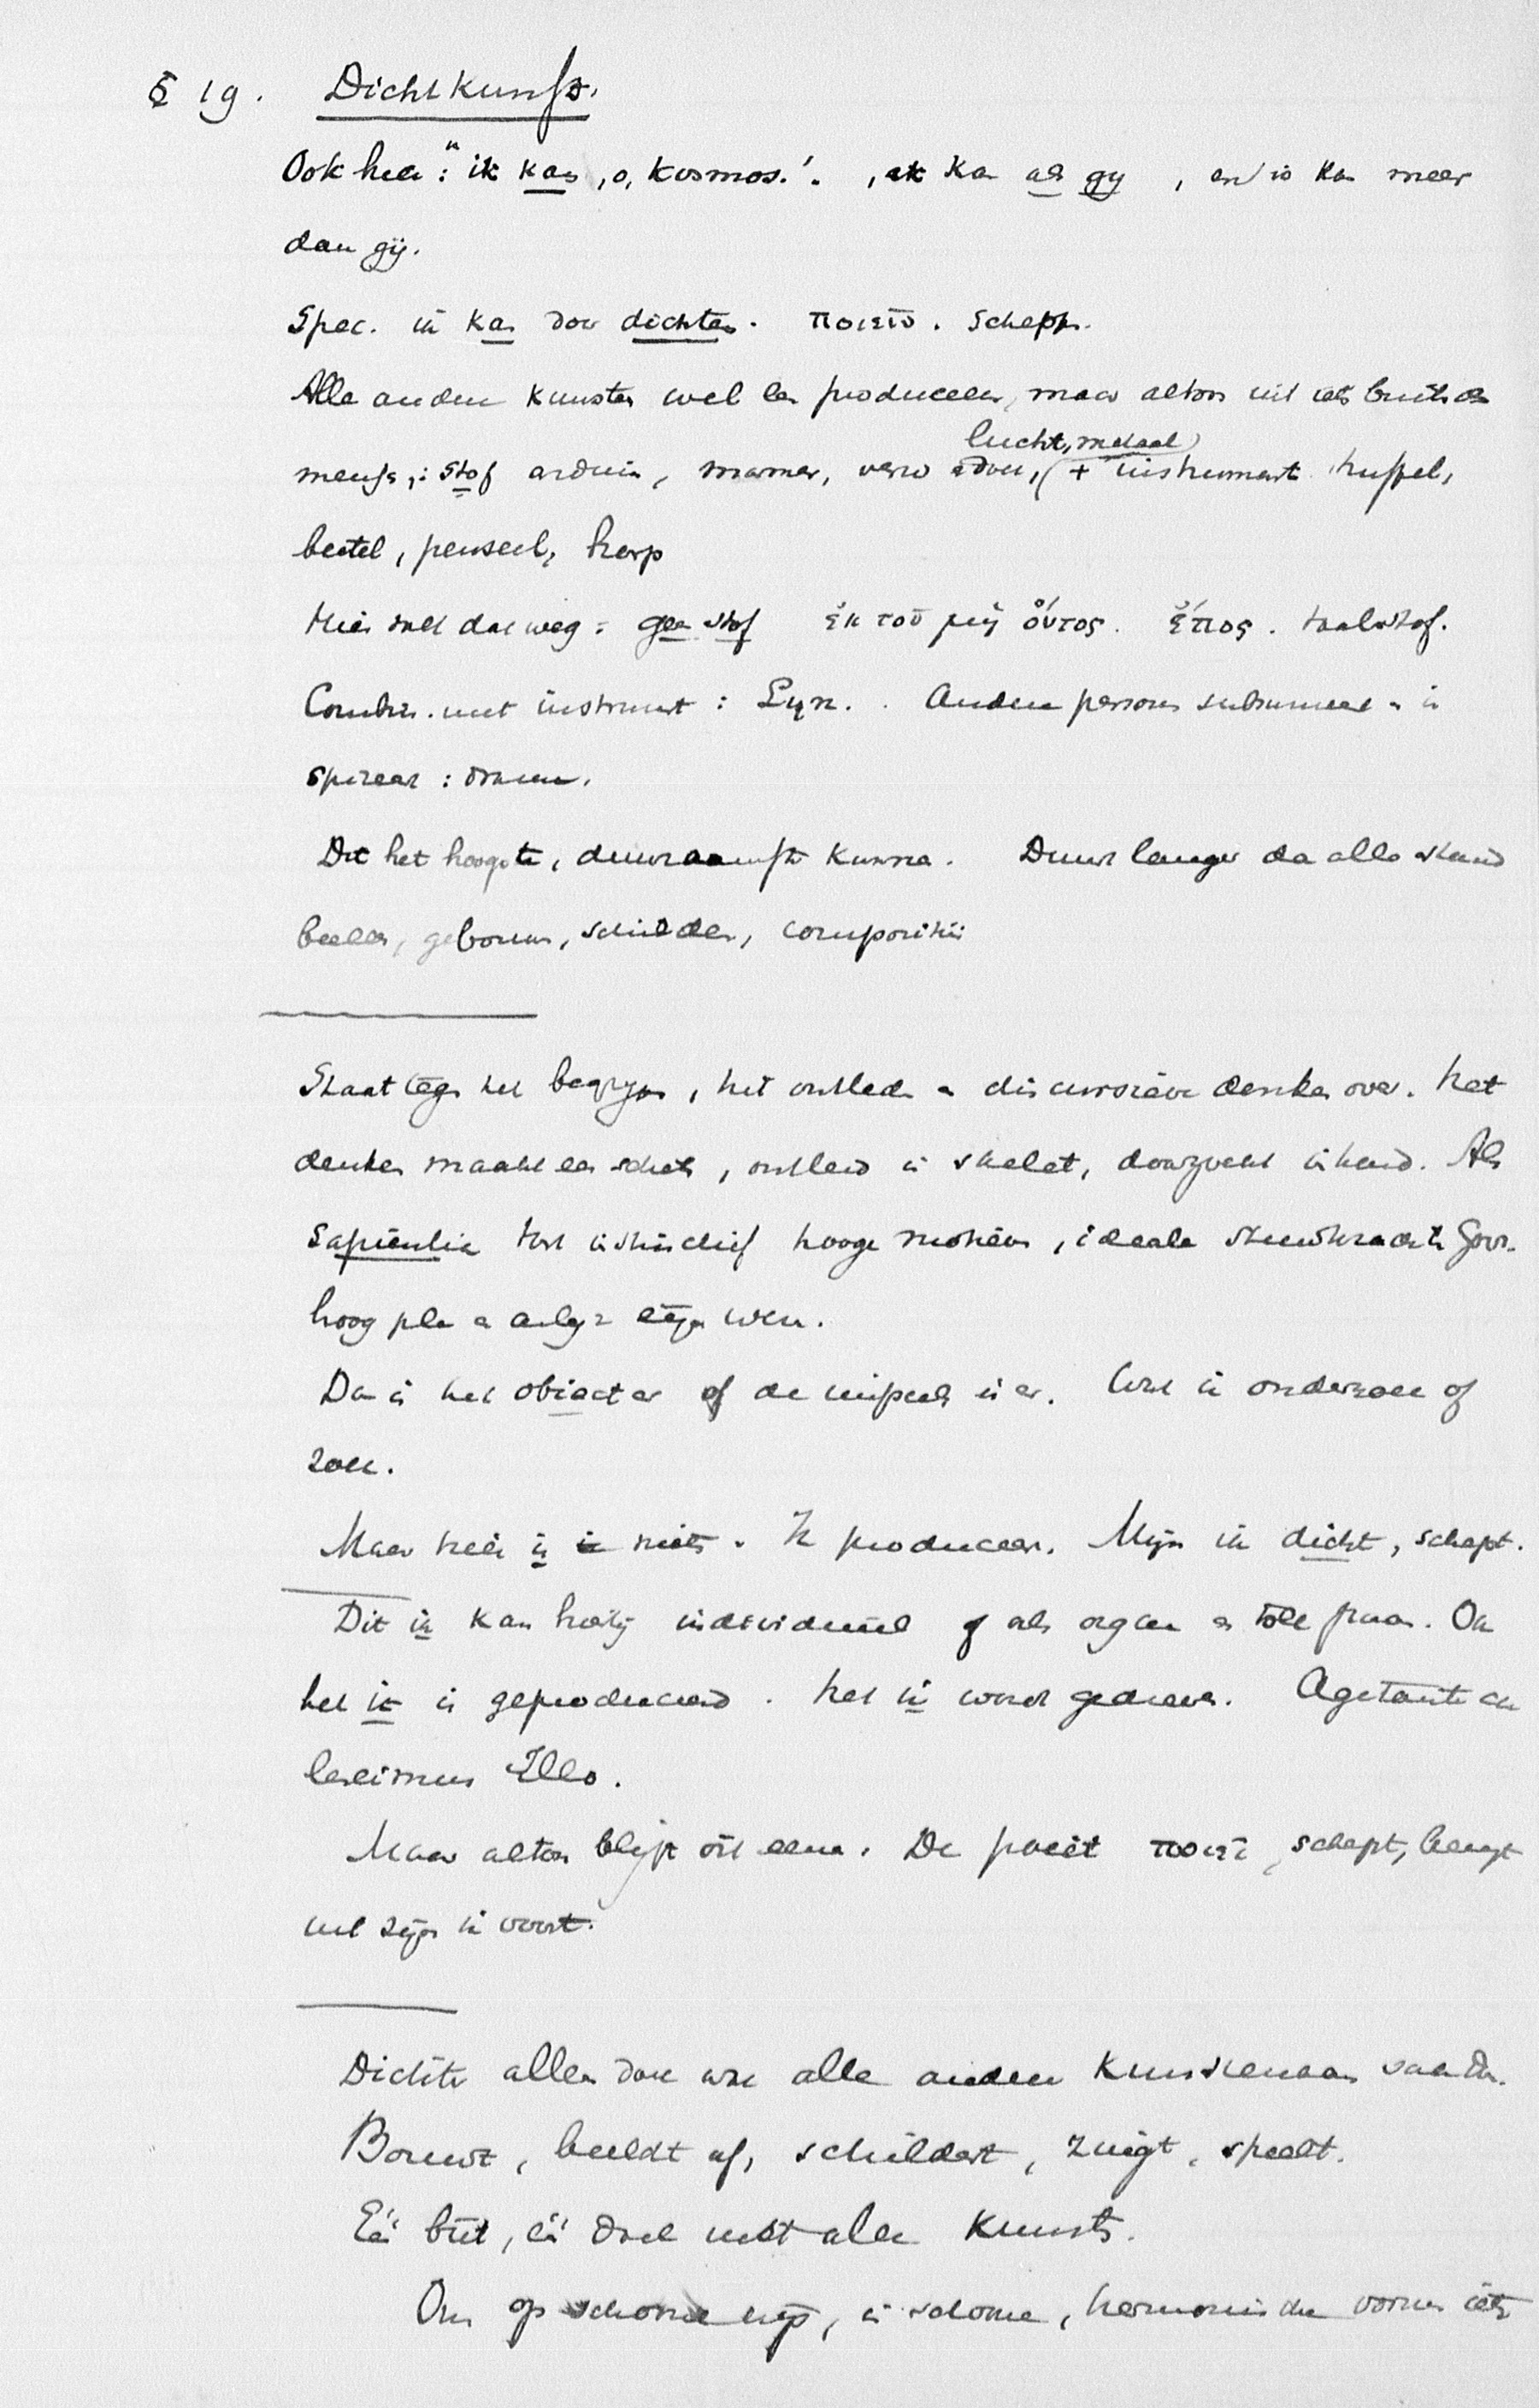 § 19. Dichtkunst.
Ook hier: "ik kan, o, kosmos.' , ik kan als gy, en ik kan meer
dan gij.
Spec. ik kan doo dichten. ποιεῖν. Schepp.
Alle andere kunsten wel len produceeren, maar altoos uit iets buiten den
lucht, metaal
mensch,: stof arduin, marmer, verw + instrument truffel,
beitel, penseel, harp
Hier valt dat weg: geen stof ἐκ τοῦ μὴ ὄντος. ἔπος. taalstof.
Combin. met instrument: Lyr. . Andere personen in
spireer: drama.
Dit het hoogste, duurzaamste kunnen. Duurt langer dan alle stand
beelden, gebouwen, schilder, compositie
Staat tegen het begrijpen, het ontleden en discursieve denken over. Het
denken maakt een schets, ontleed in skelet, doorzoekt inhoud. Als
Sapientia hooge motieven, ideale
hoog en eigen
Dan is het object er of de impuls is er. Wat ik onderzoek of
zoek.
Maar hier is niets. Ik produceer. Mijn ik dicht, schept.
Dit ik kan hierbij individueel of als orgaan Ook
het ik is geproduceerd. Het ik word gedreven. Agitante ca
lescimus Illo.
Maar altoos blijft dit eene. De poëet ποιεῖ, schept, brengt
uit zijn ik voort.
Dichter alleen doet wat alle andere kunstenaars saam doen.
Bouwt, beeldt af, schildert, zingt, speelt.
Eén doel met alle kunst.
Om op schoone wijs, in schoone, harmonische vorm iets